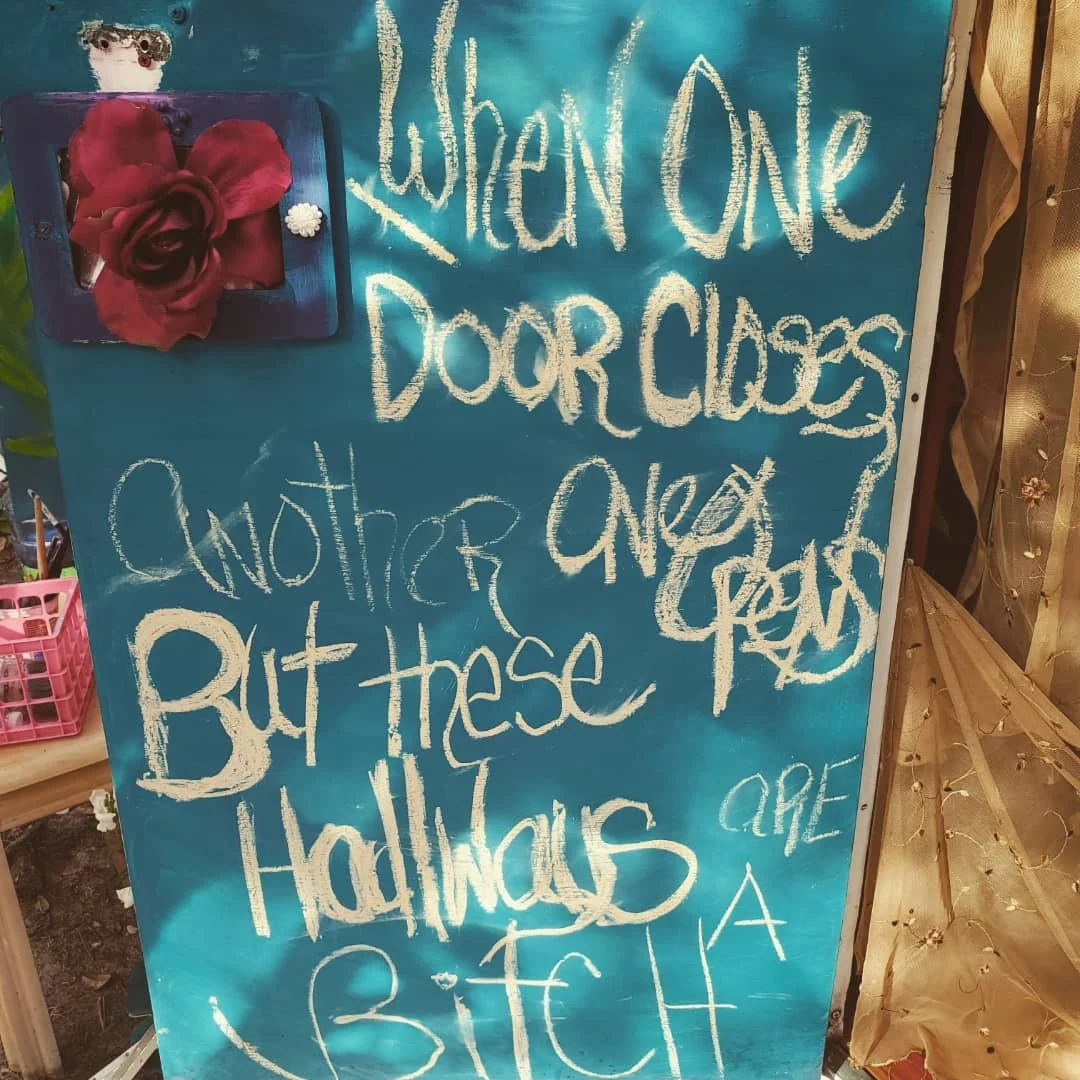 When ONe
DOOR Closes
aNotheR ONe OpeNS
But these
Hallways aRE
A
BiTCH